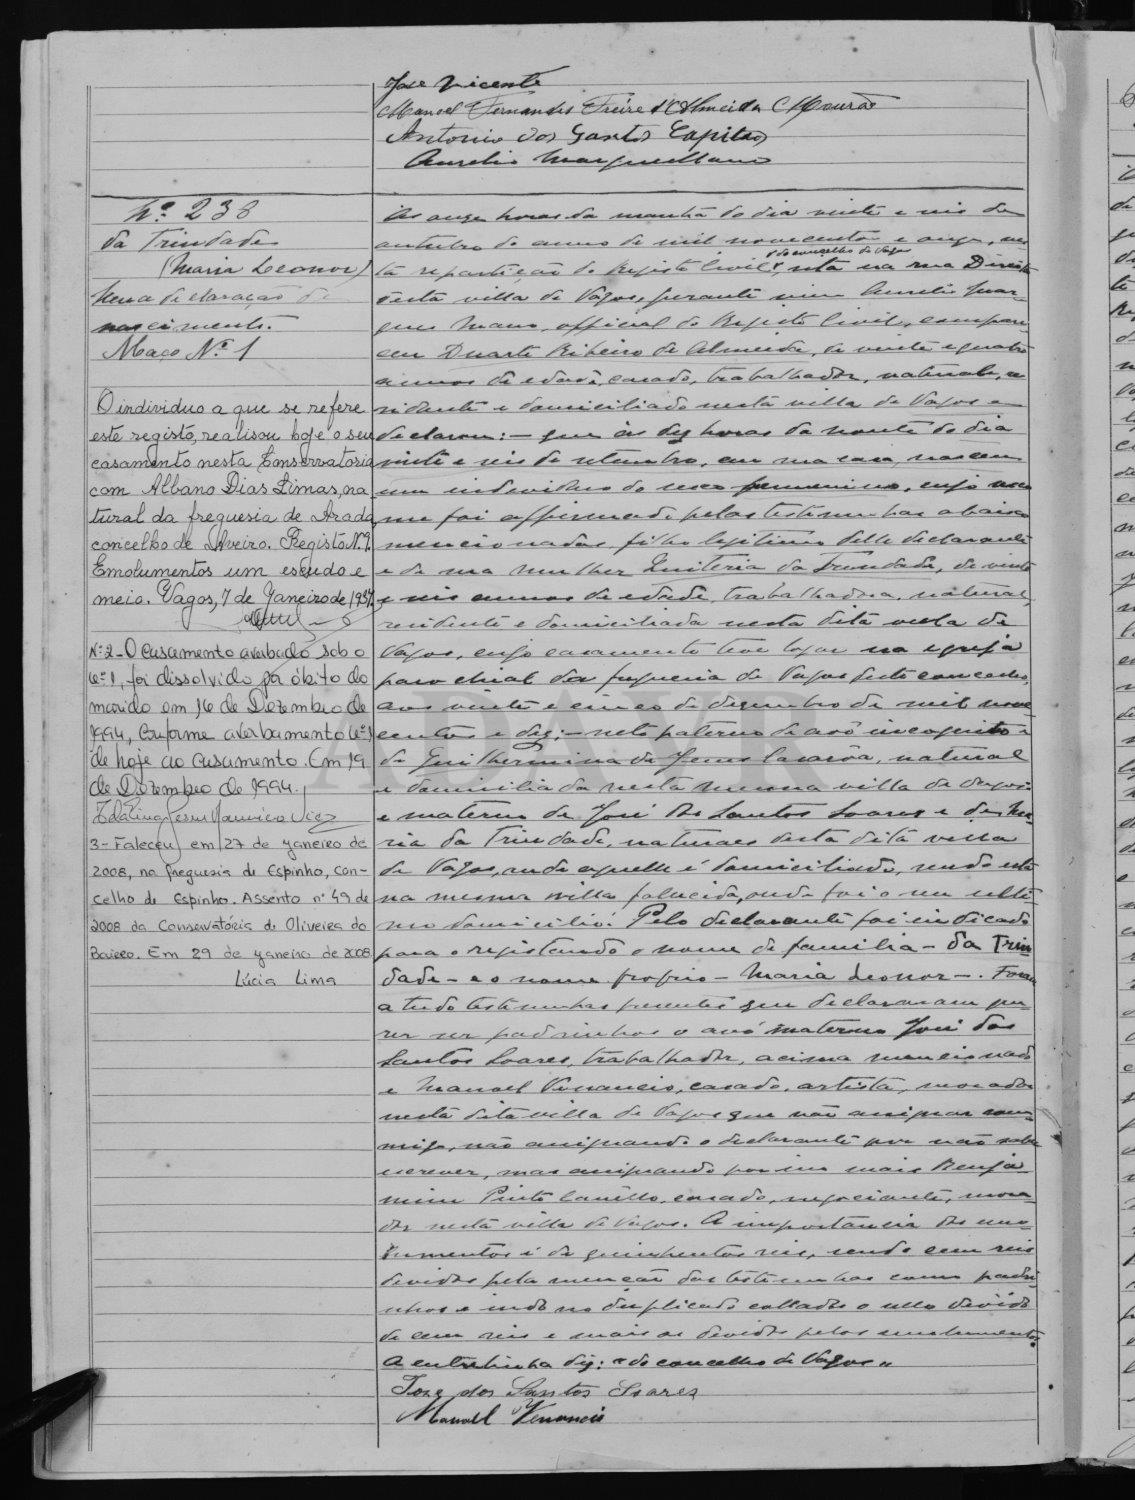 José Vicente
Manoel Fernandes Freire d'Almeida Mourão
Antonio dos Santos Capitão
Aurelio Marques Mano
Nº 238
da Trindade
(Maria Leonor)
declaração de
nascimento.
Maço Nº 1
O individuo a que se refere
este registo, realisou hoje o seu
casamento nesta Conservatoria
com Albano Dias Limas, na-
tural da freguesia de Arada
concelho de Aveiro. Registo Nº 9.
Emolumentos um escudo e
meio. Vagos, 7 de Janeiro de 1937.
Nº 2 - O casamento averbado sob o
nº 1, foi dissolvido por óbito do
marido em 16 de Dezembro de
1994, conforme averbamento nº 1
de hoje ao casamento. Em 19
de Dezembro de 1994.
3 - Faleceu em 27 de janeiro de
2008, na freguesia de Espinho, con-
celho de Espinho. Assento nº 49 de
2008 da Conservatória de Oliveira do
Bairro. Em 29 de janeiro de 2008
Lúcia Lima
Ás onze horas da manhã do dia vinte e seis de
outubro do anno de mil novecentos e onze, nes-
"do concelho de Vagos"
ta repartição do Registo Civil, sita na rua Direita
desta villa de Vagos, perante mim Aurelio Mar-
ques Mano, official do Registo Civil, compare-
ceu Duarte Ribeiro de Almeida, de vinte e quatro
annos de edade, casado, trabalhador, natural, re-
sidente e domiciliado nesta villa de Vagos e
declarou: - que ás dez horas da noute do dia
vinte e seis de setembro, em sua casa, nasceu
um individuo do sexo femenino, cujo no-
me foi affirmado pelas testemunhas abaixo
mencionadas, filho legitimo delle declarante
e de sua mulher Quiteria da Trindade, de vinte
e seis annos de edade, trabalhadora, natural,
residente e domiciliada nesta dita villa de
Vagos, cujo casamento teve logar na egreja
parochial da freguesia de Vagos deste concelho,
aos vinte e cinco de dezembro de mil nove-
centos e dez; - neto paterno de avô incognito e
de Guilhermina de Jesus, natural
e domiciliada nesta mesma villa de Vagos:
e materno de José dos Santos Soares e de Ma-
ria da Trindade, naturaes desta dita villa
de Vagos, onde aquelle é domiciliado, sendo esta
na mesma villa falecida, onde foi o seu ulti-
mo domicilio. Pelo declarante foi indicado
para o registando o nome de familia - da Trin-
dade - e o nome proprio - Maria Leonor -. Foram
a tudo testemunhas presentes que declararam que-
rer ser padrinhos o avô materno José dos
Santos Soares, trabalhador, acima mencionado
e Manoel Venancio, casado, artista, morador
nesta dita villa de Vagos que vão assignar com-
migo, não assignando o declarante por não saber
escrever, mas assignando por isso mais Benja-
mim Pinto Camêllo, casado, negociante, mora-
dor nesta villa de Vagos. A importancia dos emo-
lumentos é de quinhentos reis, sendo cem reis
devidos pela menção das testemunhas como padri-
nhos e indo no duplicado collado o sello devido
de cem reis e mais os devidos pelos emolumentos.
A entrelinha diz: "do concelho de Vagos".
José dos Santos Soares
Manoel Venancio
ADAVR